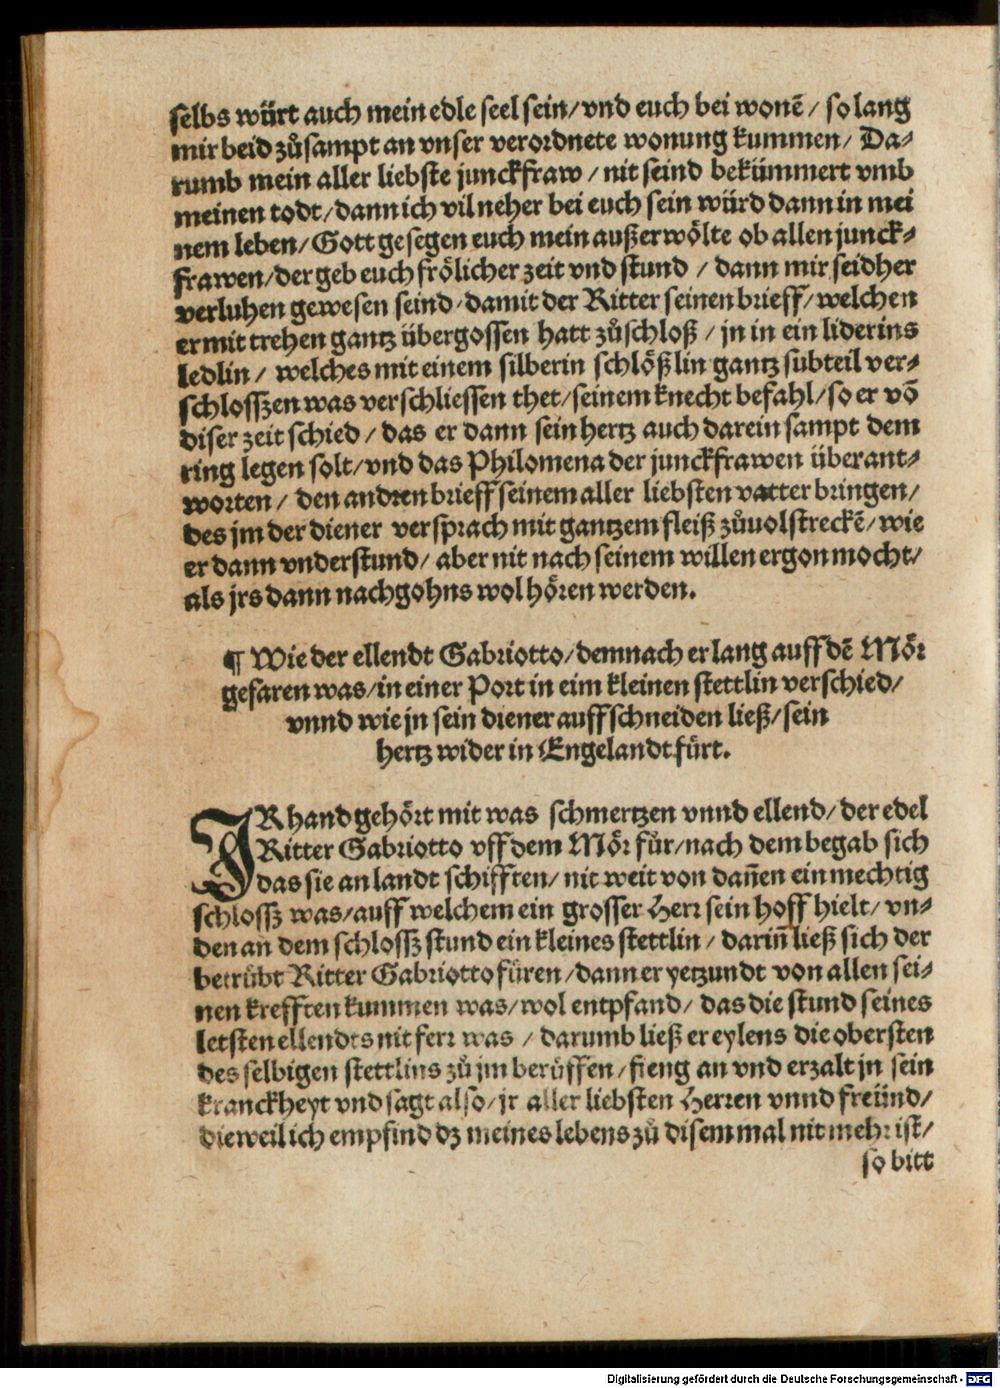 selbs würt auch mein edle seel sein/vnd euch bei wonē/ so lang
mir beid zůsampt an vnser verordnete wonung kummen/ Da-
rumb mein aller liebste junckfraw/ nit seind bekümmert vmb
meinen todt/dann ich vil neher bei euch sein würd dann in mei
nem leben/Gott gesegen euch mein außerwölte ob allen junck-
frawen/der geb euch frölicher zeit vnd stund / dann mir seidher
verluhen gewesen seind/damit der Ritter seinen brieff/welchen
er mit trehen gantz übergossen hatt zůschloß / jn in ein liderins
ledlin/ welches mit einem silberin schlößlin gantz subteil ver-
schlossen was verschliessen thet/seinem knecht befahl/so er vō
diser zeit schied/ das er dann sein hertz auch darein sampt dem
ring legen solt/vnd das Philomena der junckfrawen überant-
worten/ den andren brieff seinem aller liebsten vatter bringen/
des jm der diener versprach mit gantzem fleiß zůuolstreckē/wie
er dann vnderstund/ aber nit nach seinem willen ergon mocht/
als jrs dann nachgohns wol hören werden.
¶ Wie der ellendt Gabriotto/demnach er lang auff dē Mör
gefaren was/in einer Port in eim kleinen stettlin verschied/
vnnd wie jn sein diener auffschneiden ließ/sein
hertz wider in Engelandt fürt.
JR hand gehört mit was schmertzen vnnd ellend/der edel
Ritter Gabriotto vff dem Mör fůr/nach dem begab sich
das sie an landt schifften/ nit weit von dañen ein mechtig
schlossz was/auff welchem ein grosser Herr sein hoff hielt/ vn-
den an dem schlossz stund ein kleines stettlin/ dariñ ließ sich der
betrübt Ritter Gabriotto füren/dann er yetzundt von allen sei-
nen krefften kummen was/wol entpfand/ das die stund seines
letsten ellendts nit ferr was / darumb ließ er eylens die obersten
des selbigen stettlins zů jm berüffen/ fieng an vnd erzalt jn sein
kranckheyt vnd sagt also/jr aller liebsten Herren vnnd freünd/
dieweil ich empfind dz meines lebens zů disem mal nit mehr ist/
so bitt
Digitalisierung gefördert durch die Deutsche Forschungsgemeinschaft - DFG